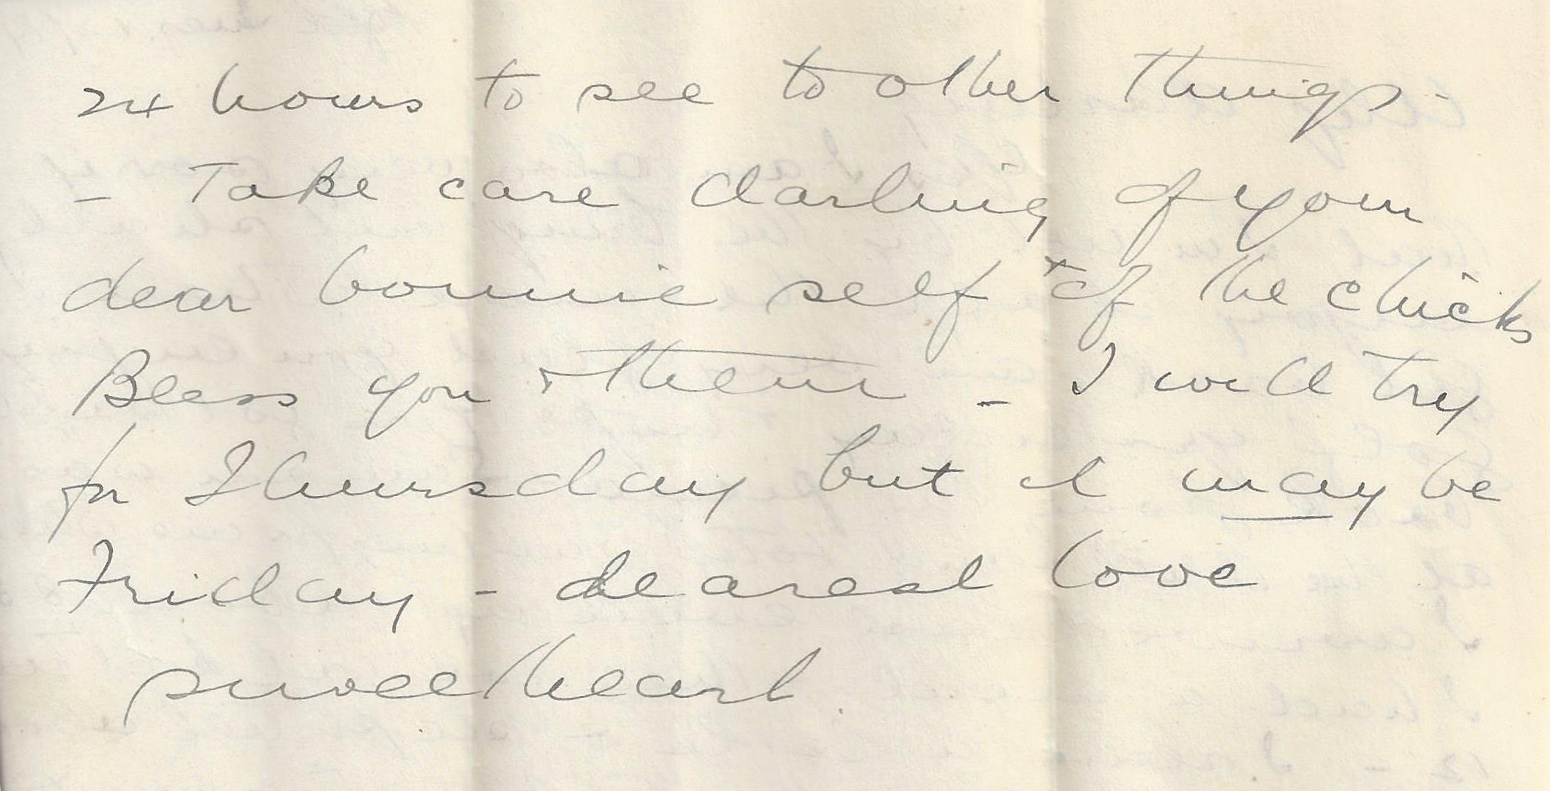 24 hours to see to other things.
- Take care darling of your
dear bonnie self + of the chicks
Bless you + them - I will try
for Thursday but it may be
Friday - dearest love
sweetheart.